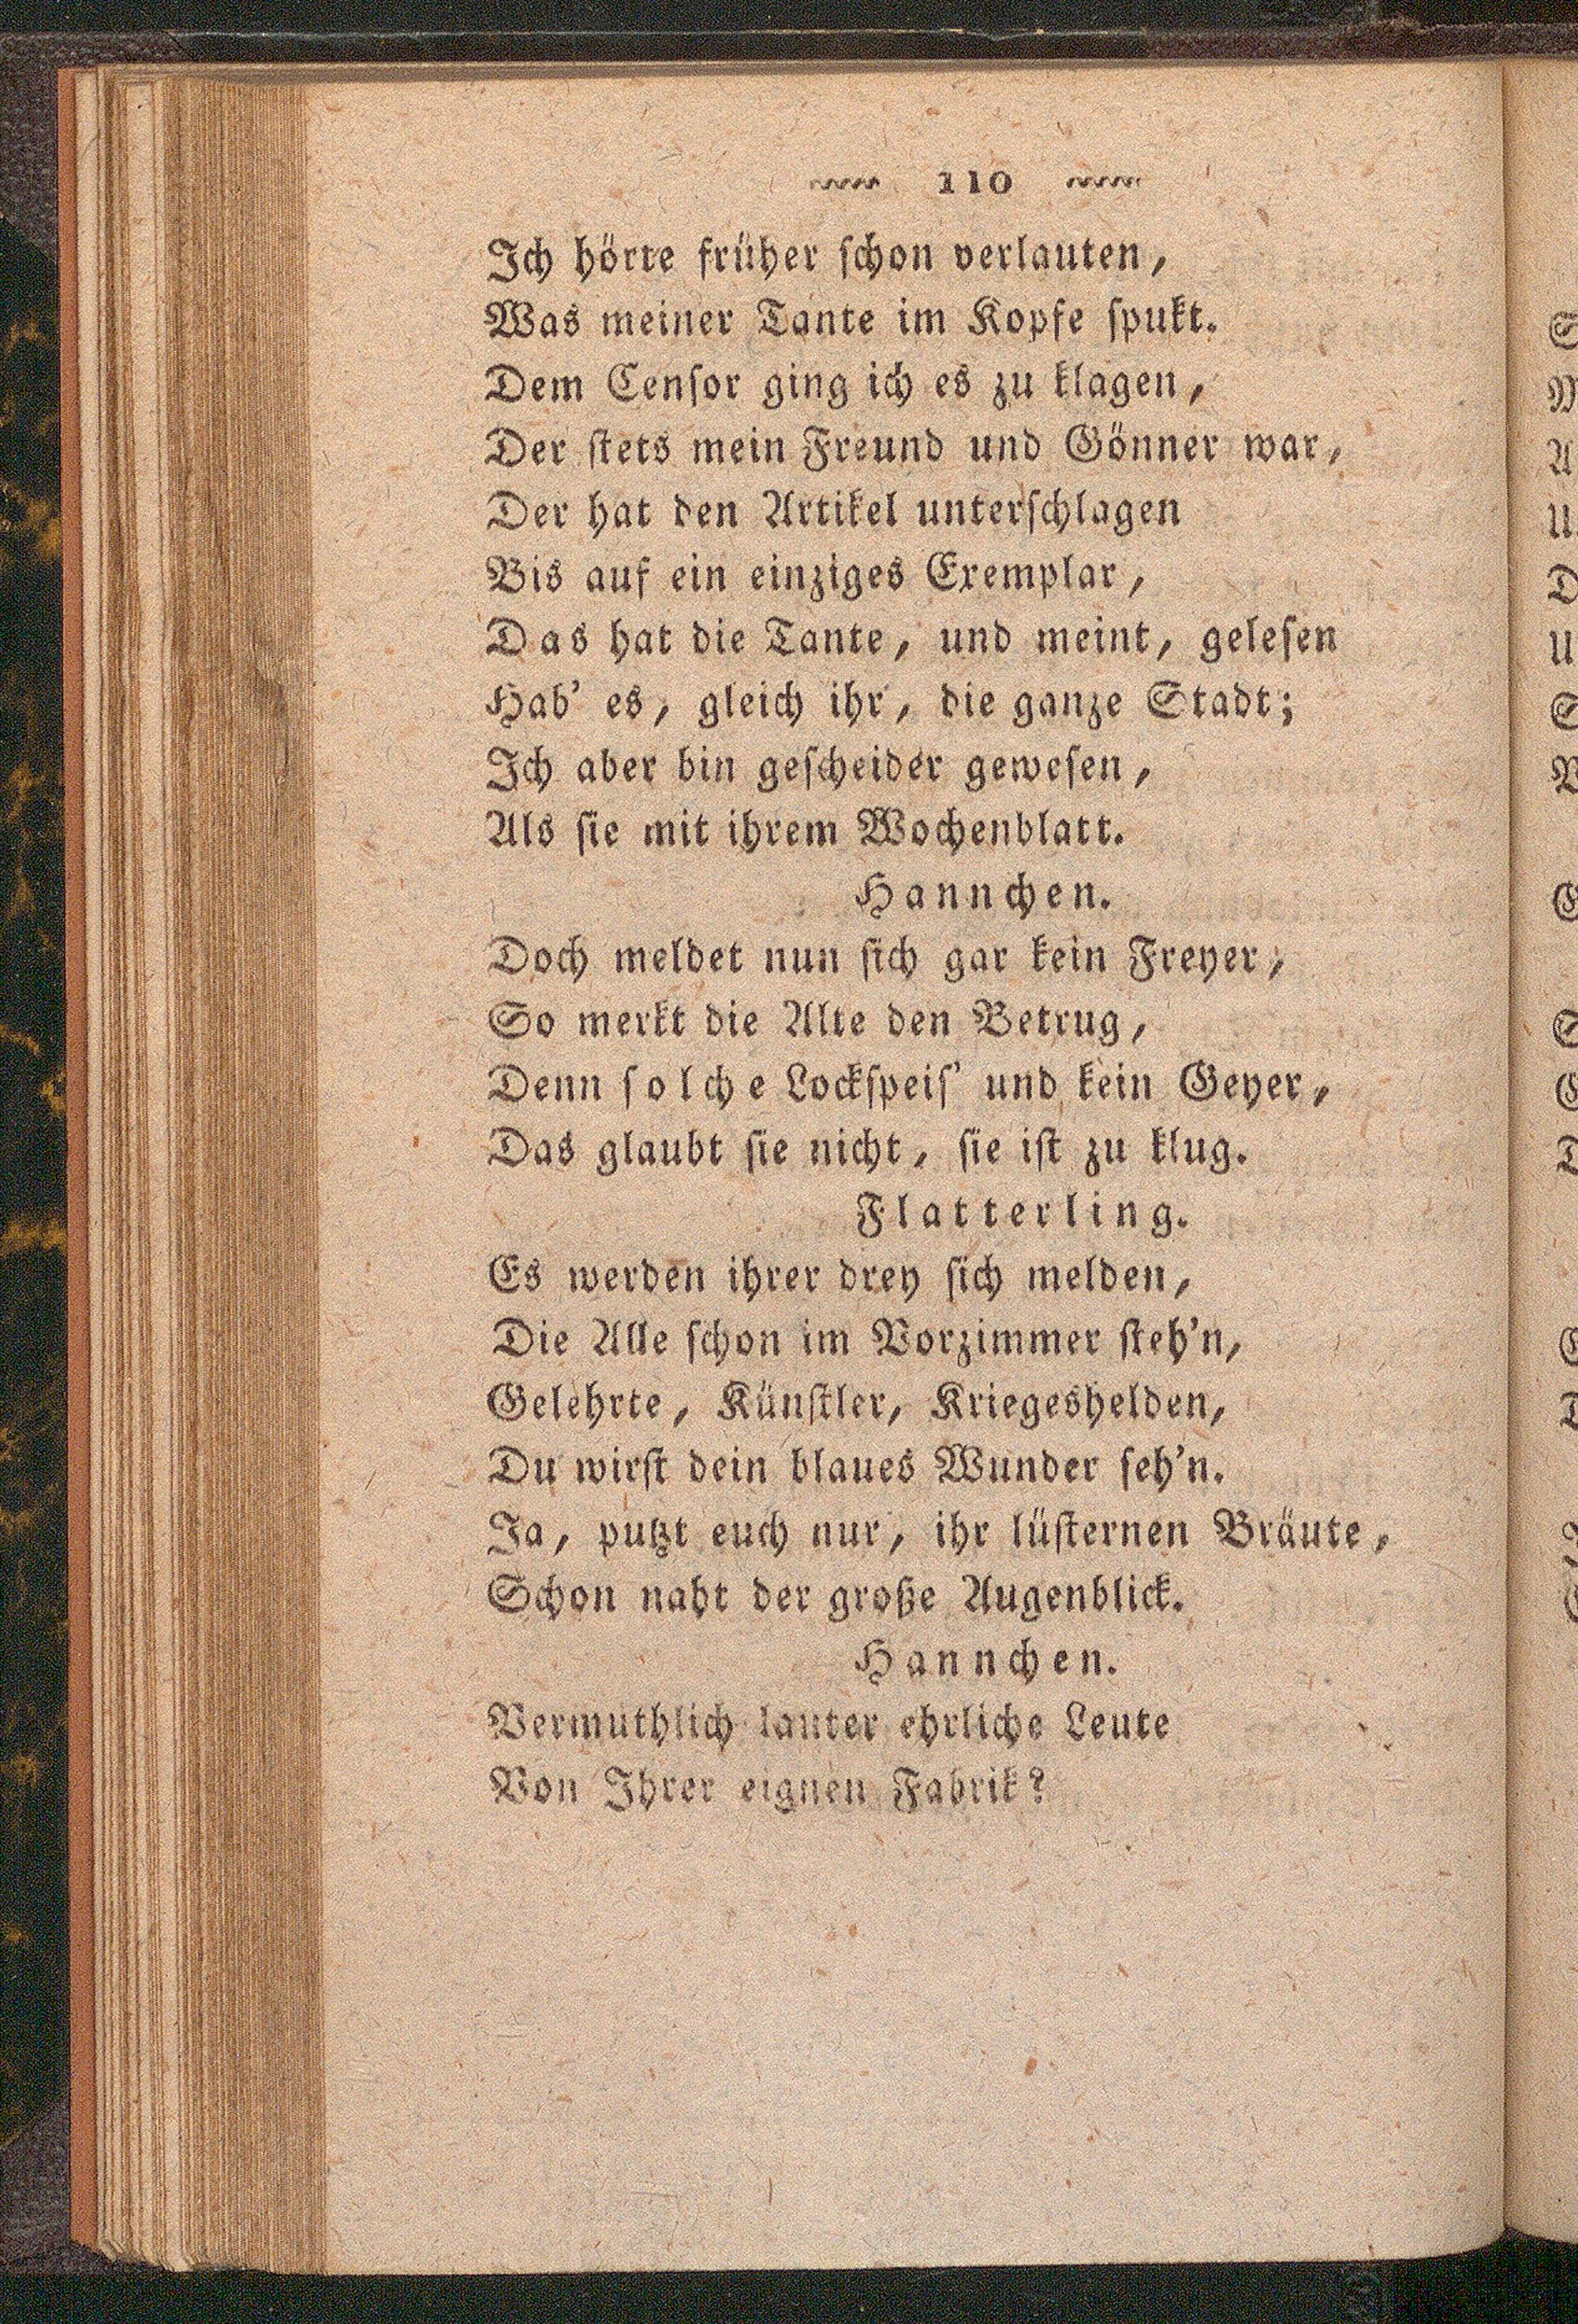 ~~~ 110 ~~~
Ich hörte früher ſchon verlauten,
Was meiner Tante im Kopfe ſpukt.
Dem Cenſor ging ich es zu klagen,
Der ſtets mein Freund und Gönner war,
Der hat den Artikel unterſchlagen
Bis auf ein einziges Exemplar,
Das hat die Tante, und meint, geleſen
Hab' es, gleich ihr, die ganze Stadt;
Ich aber bin geſcheider geweſen,
Als ſie mit ihrem Wochenblatt.
Hannchen.
Doch meldet nun ſich gar kein Freyer,
So merkt die Alte den Betrug,
Denn ſolche Lockſpeiſ' und kein Geyer,
Das glaubt ſie nicht, ſie iſt zu klug.
Flatterling.
Es werden ihrer drey ſich melden,
Die Alle ſchon im Vorzimmer ſteh'n,
Gelehrte, Künſtler, Kriegeshelden,
Du wirſt dein blaues Wunder ſeh'n.
Ja, putzt euch nur, ihr lüſternen Bräute,
Schon naht der große Augenblick.
Hannchen.
Vermuthlich lauter ehrliche Leute
Von Ihrer eignen Fabrik?